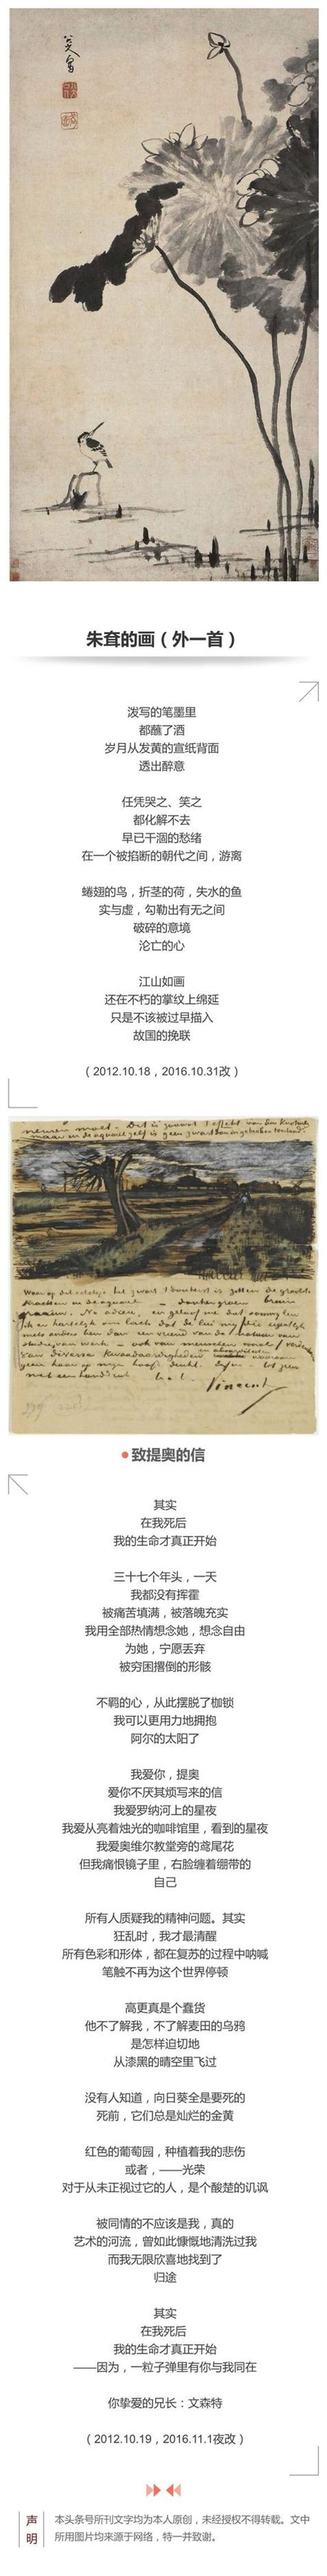 八大山人
朱耷的画（外一首）
泼写的笔墨里
都蘸了酒
岁月从发黄的宣纸背面
透出醉意
任凭哭之、笑之
都化解不去
早已干涸的愁绪
在一个被掐断的朝代之间，游离
蜷翅的鸟，折茎的荷，失水的鱼
实与虚，勾勒出有无之间
破碎的意境
沦亡的心
江山如画
还在不朽的掌纹上绵延
只是不该被过早描入
故国的挽联
（2012.10.18，2016.10.31改）
Vincent
致提奥的信
其实
在我死后
我的生命才真正开始
三十七个年头，一天
我都没有挥霍
被痛苦填满，被落魄充实
我用全部热情想念她，想念自由
为她，宁愿丢弃
被穷困撂倒的形骸
不羁的心，从此摆脱了枷锁
我可以更用力地拥抱
阿尔的太阳了
我爱你，提奥
爱你不厌其烦写来的信
我爱罗纳河上的星夜
我爱从亮着烛光的咖啡馆里，看到的星夜
我爱奥维尔教堂旁的鸢尾花
但我痛恨镜子里，右脸缠着绷带的
自己
所有人质疑我的精神问题。其实
狂乱时，我才最清醒
所有色彩和形体，都在复苏的过程中呐喊
笔触不再为这个世界停顿
高更真是个蠢货
他不了解我，不了解麦田的乌鸦
是怎样迫切地
从漆黑的晴空里飞过
没有人知道，向日葵全是要死的
死前，它们总是灿烂的金黄
红色的葡萄园，种植着我的悲伤
或者，——光荣
对于从未正视过它的人，是个酸楚的讥讽
被同情的不应该是我，真的
艺术的河流，曾如此慷慨地清洗过我
而我无限欣喜地找到了
归途
其实
在我死后
我的生命才真正开始
——因为，一粒子弹里有你与我同在
你挚爱的兄长：文森特
（2012.10.19，2016.11.1夜改）
声明
本头条号所刊文字均为本人原创，未经授权不得转载。文中
所用图片均来源于网络，特一并致谢。